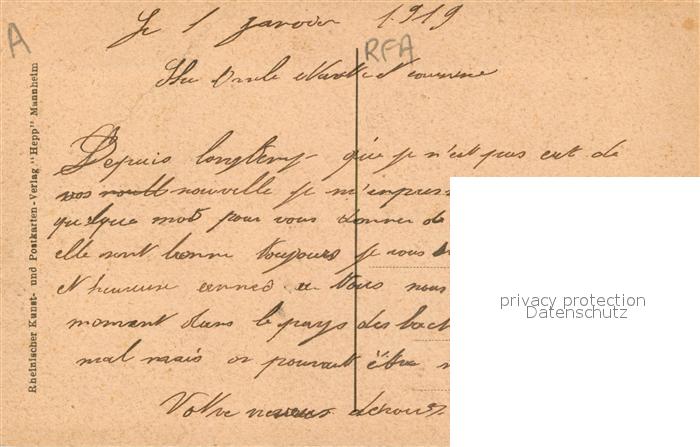 Le 1 janvier 1919
A
RFA
Cher Oncle et cousine
Depuis longtemp que je n'est pas eut de
vos nouvelle je m'empres
quelque mot pour vous donner de
elle sont bonne toujours je vous
et heureuse anneé a tous nous
moment dans le pays des boch
mal mais on pourrait être
Votre neveu
Rheinischer Kunst- und Postkarten-Verlag "Hepp" Mannheim
privacy protection
Datenschutz